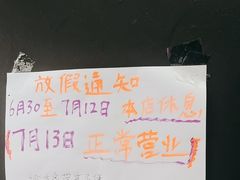 放假通知
6月30至7月12日 本店休息!
【7月13日 正常营业】